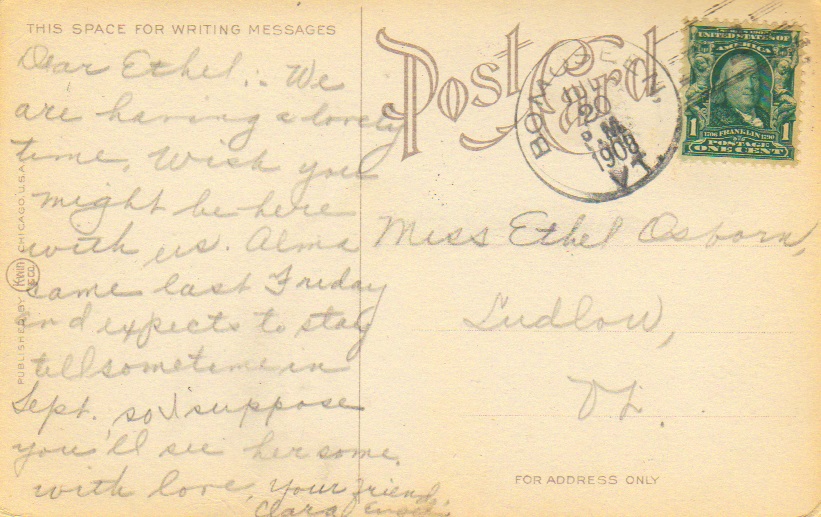 THIS SPACE FOR WRITING MESSAGES
Dear Ethel:- We
are having a lovely
time. Wish you
might be here
with us. Alma
came last Friday
and expects to stay
till sometime in
Sept. so I suppose
you'll see her some.
with love, Your friend,
Clara
PUBLISHED BY KWIN & CO. CHICAGO, U.S.A.
Post Card
JUL
20
P.M.
1908
VT.
UNITED STATES OF
AMERICA
1706 FRANKLIN 1790
1 POSTAGE 1
ONE CENT
Miss Ethel Osborn,
Ludlow,
Vt.
FOR ADDRESS ONLY